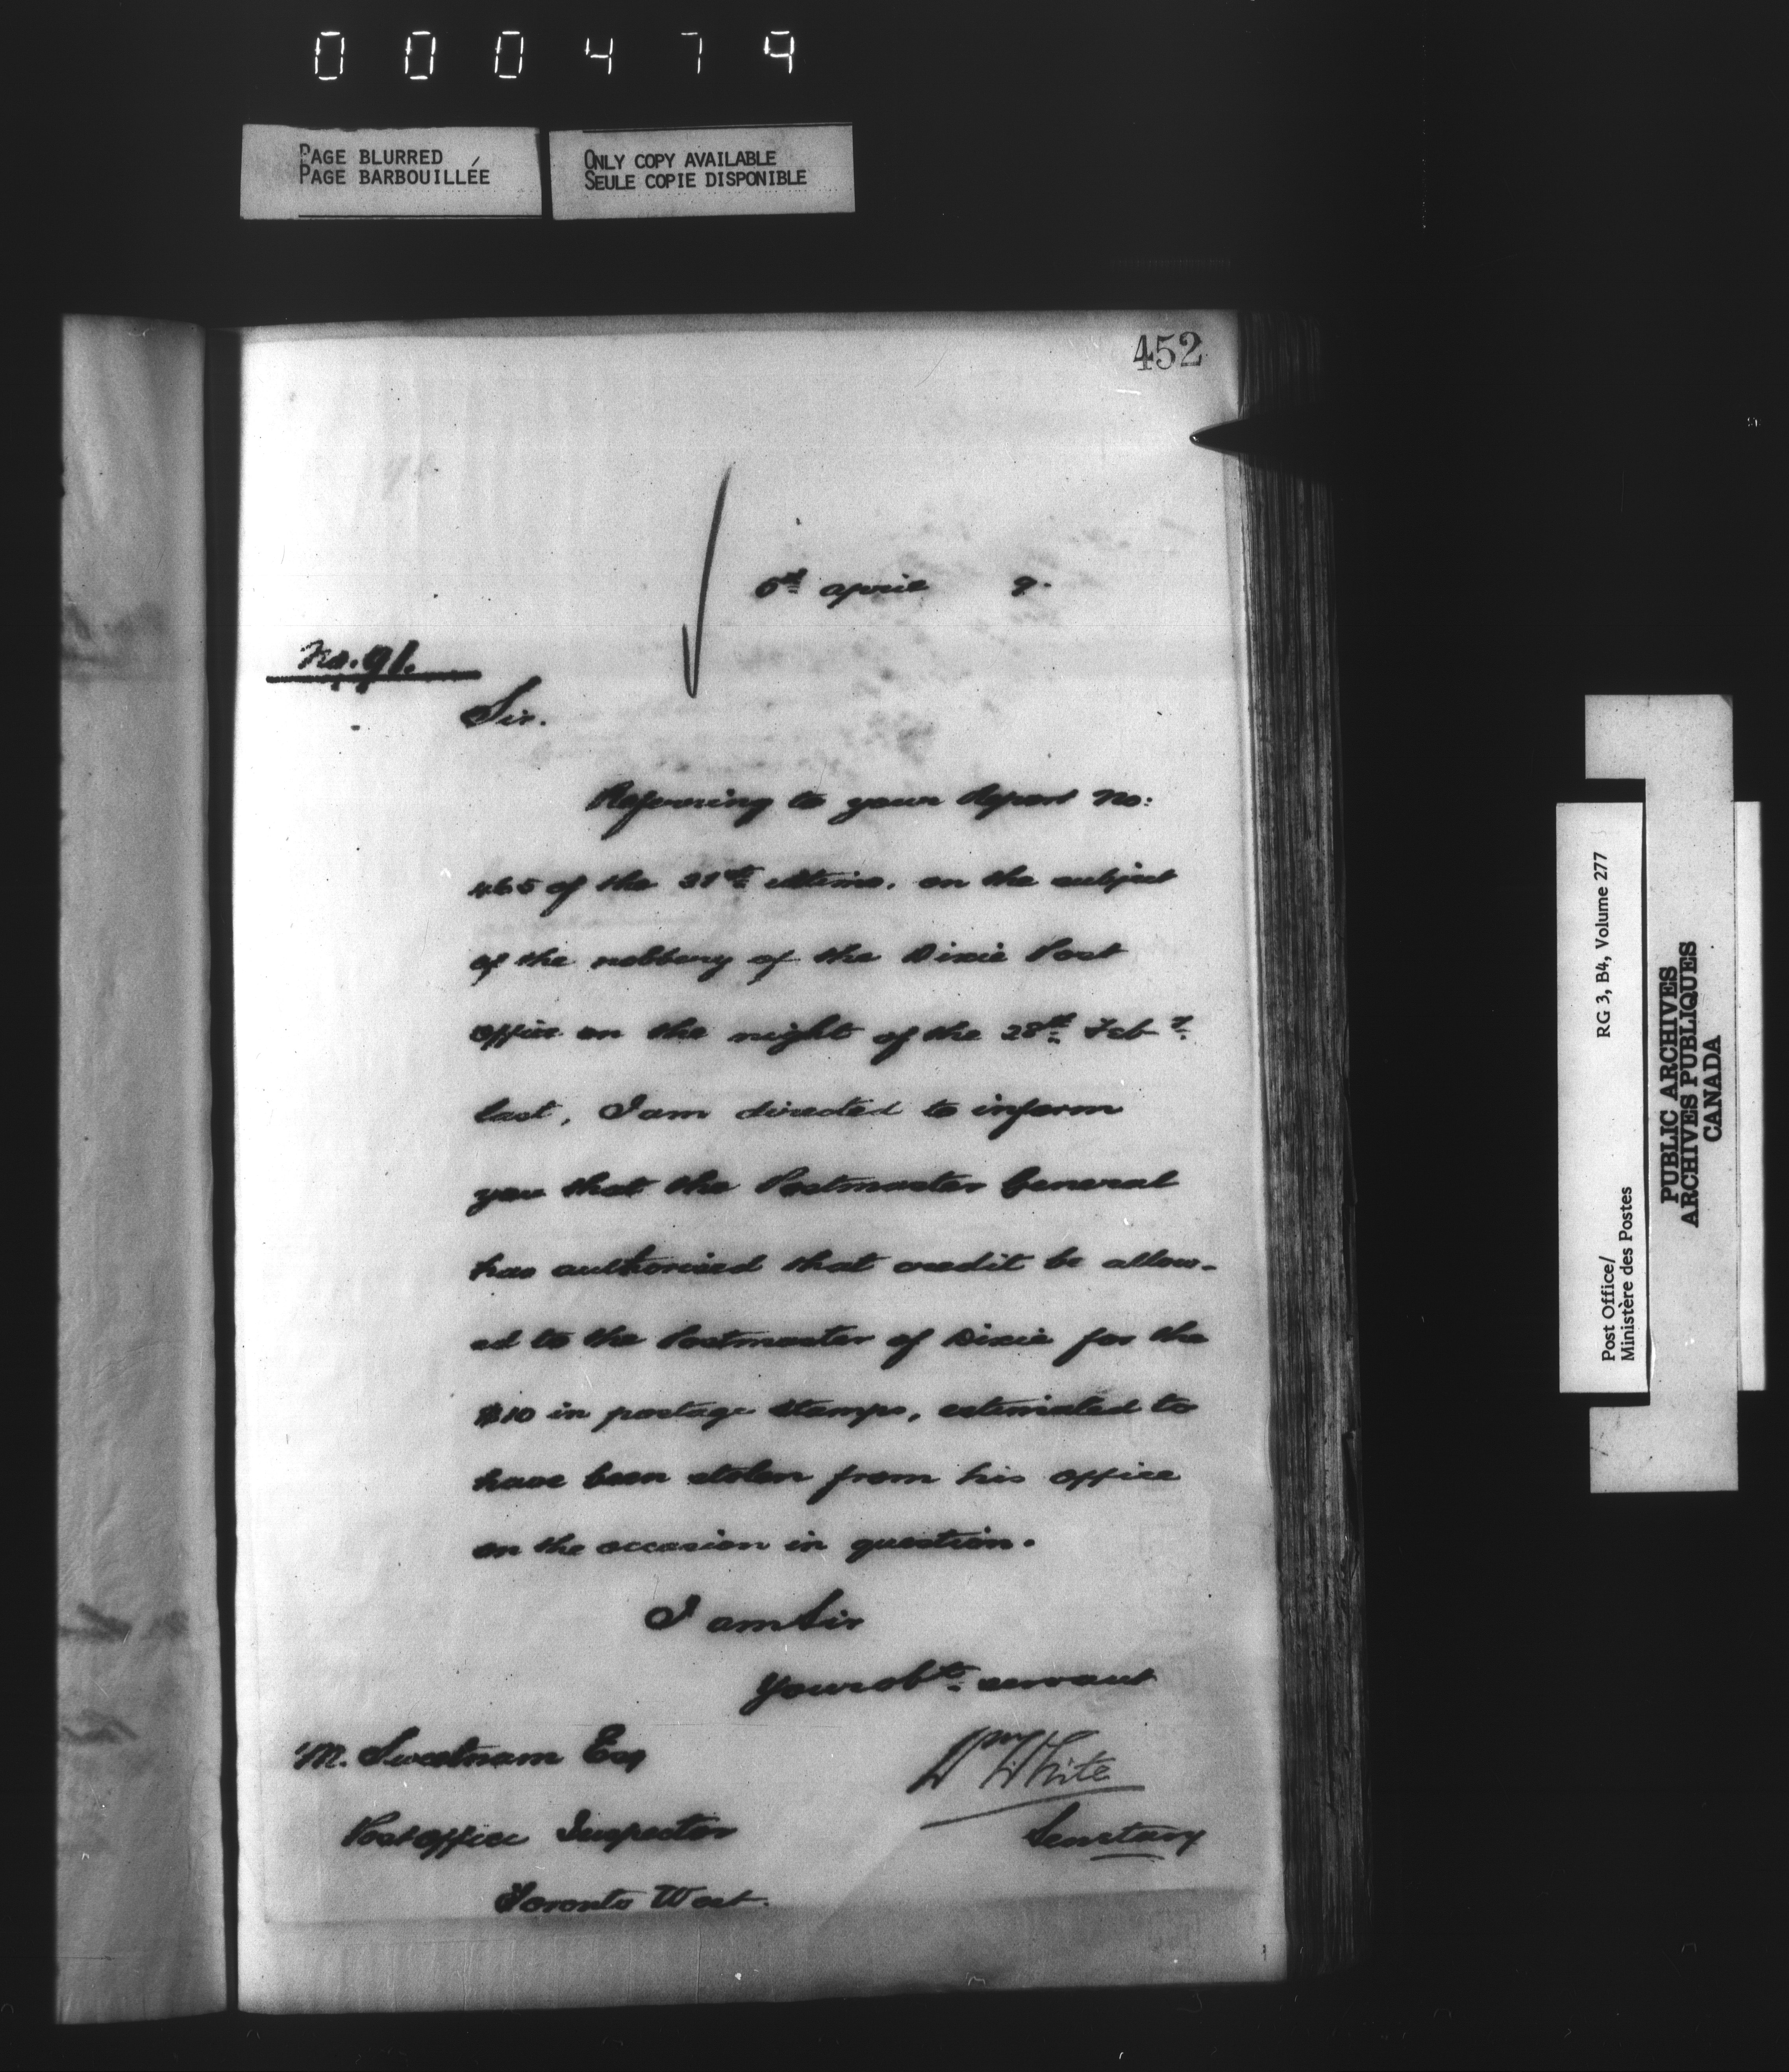 000479
PAGE BLURRED
PAGE BARBOUILLÉE
ONLY COPY AVAILABLE
SEULE COPIE DISPONIBLE
452
April 9.
No. 91.
Sir.
Referring to your Report No:
465 of the 31st ultimo, on the subject
of the robbery of the Dixie Post
Office on the night of the 28th Feby
last, I am directed to inform
you that the Postmaster General
has authorised that credit be allow-
ed to the Postmaster of Dixie for the
$10 in postage stamps, estimated to
have been stolen from his office
on the occasion in question.
I am Sir
Your obt. servant
M. Sweetnam Esq
Wm White
Post Office Inspector
Secretary
Toronto West.
Post Office/
Ministère des Postes
RG 3, B4, Volume 277
PUBLIC ARCHIVES
ARCHIVES PUBLIQUES
CANADA